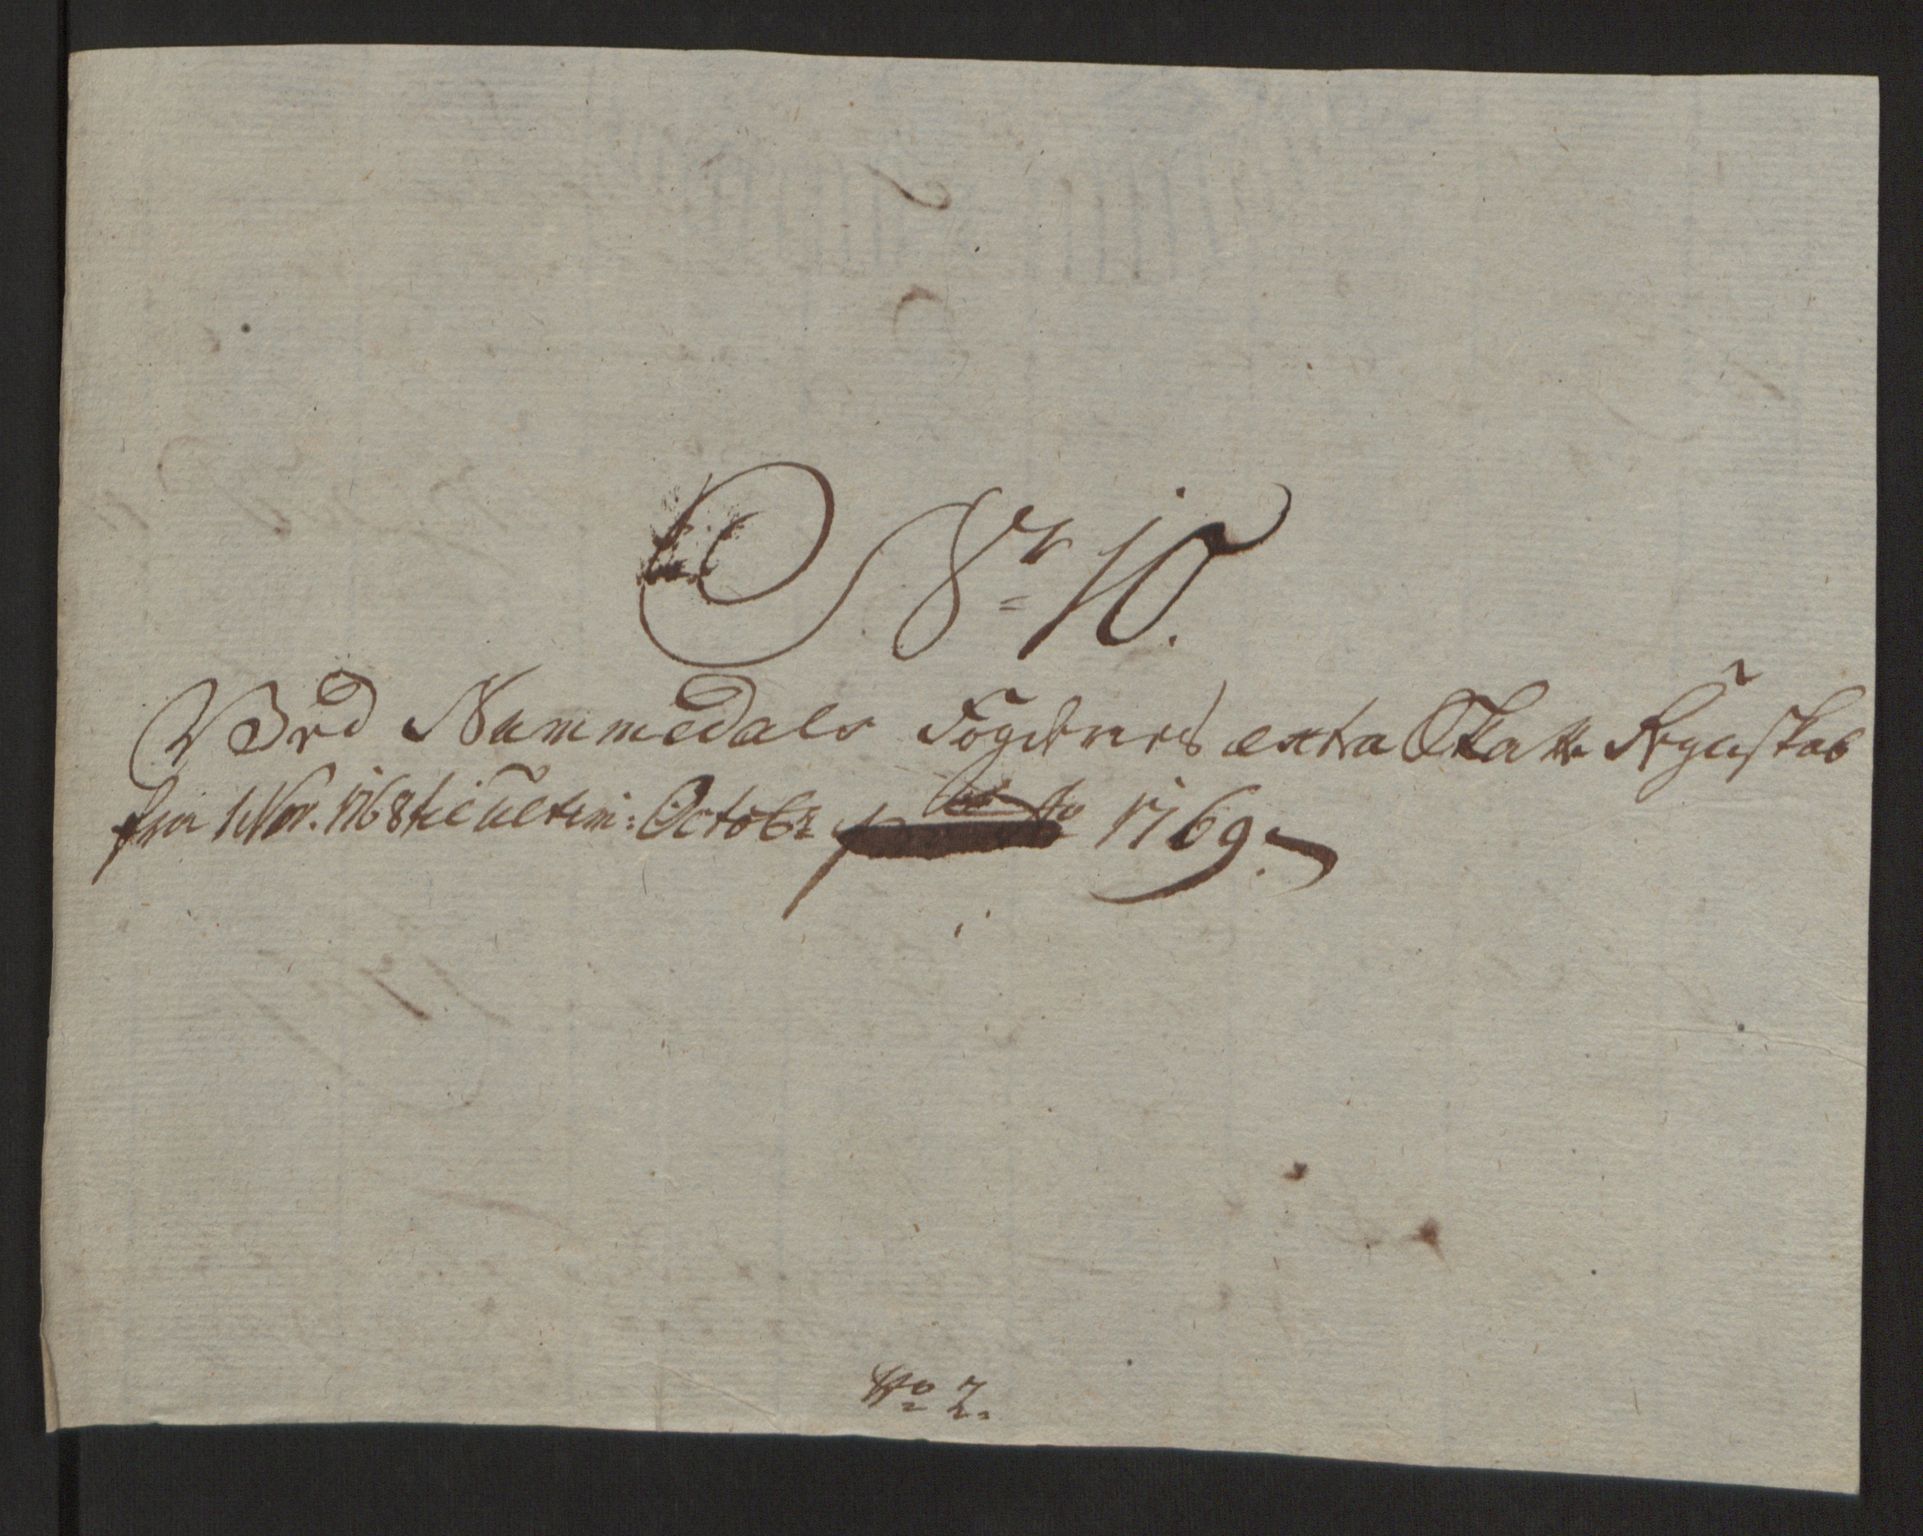 No 10.
Ved Nummedals Fogderies extra Skatte Regnskab
fra 1 Nov. 1768 til ultim: Octobr 1769.
No 2.